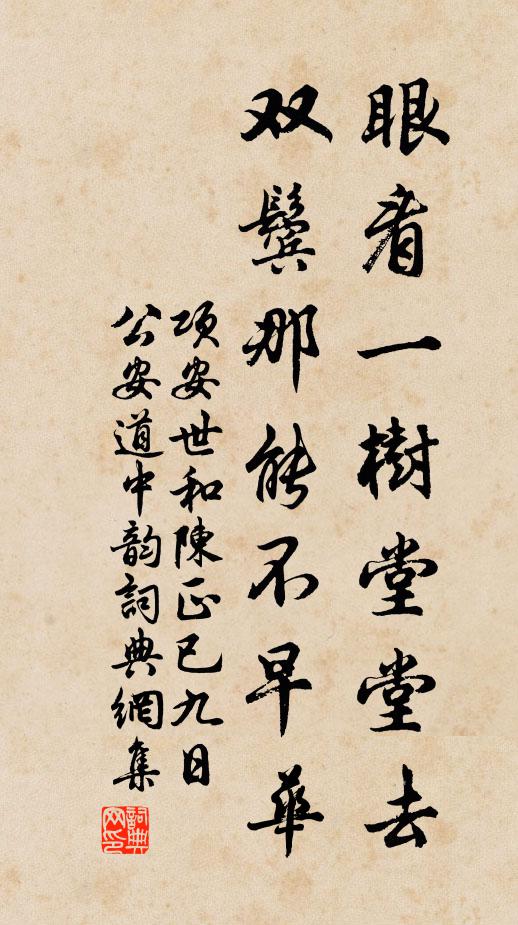 眼看一樹堂堂去
双鬓那能不早華
項安世和陳正已九日
公安道中韵詞典網集
詞典网印